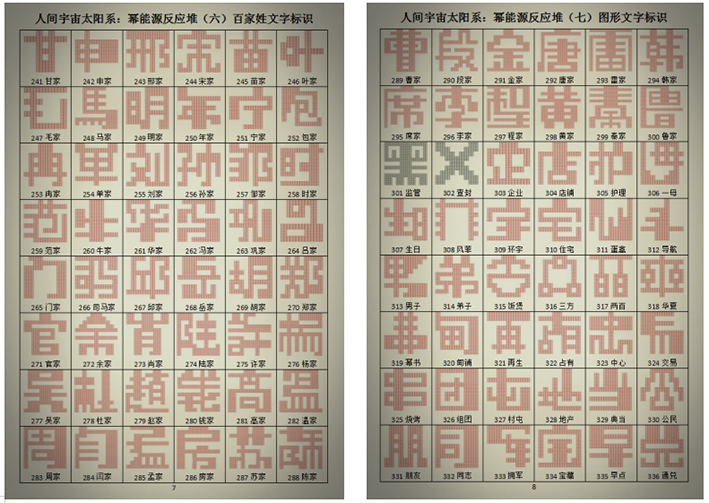 人间宇宙太阳系：幂能源反应堆（六）百家姓文字标识
241 甘家 242 申家 243 邢家 244 宋家 245 苗家 246 叶家
247 毛家 248 马家 249 明家 250 年家 251 宁家 252 包家
253 冉家 254 单家 255 刘家 256 孙家 257 邹家 258 时家
259 范家 260 牛家 261 华家 262 冯家 263 巩家 264 吕家
265 门家 266 司马家 267 邱家 268 岳家 269 胡家 270 郑家
271 官家 272 余家 273 肖家 274 陆家 275 许家 276 杨家
277 吴家 278 杜家 279 赵家 280 钱家 281 高家 282 温家
283 周家 284 闫家 285 孟家 286 房家 287 苏家 288 陈家
7
人间宇宙太阳系：幂能源反应堆（七）图形文字标识
289 曹家 290 段家 291 金家 292 唐家 293 雷家 294 韩家
295 席家 296 李家 297 程家 298 黄家 299 秦家 300 鲁家
301 监管 302 查封 303 企业 304 店铺 305 护理 306 一母
307 生日 308 风筝 309 环宇 310 住宅 311 蛋盒 312 导航
313 男子 314 弟子 315 饭煲 316 三方 317 两百 318 华夏
319 幂书 320 甸铺 321 再生 322 占有 323 中心 324 交易
325 烧烤 326 组团 327 村屯 328 地产 329 典当 330 公民
331 朋友 332 同志 333 拥军 334 宝藏 335 早点 336 通兑
8